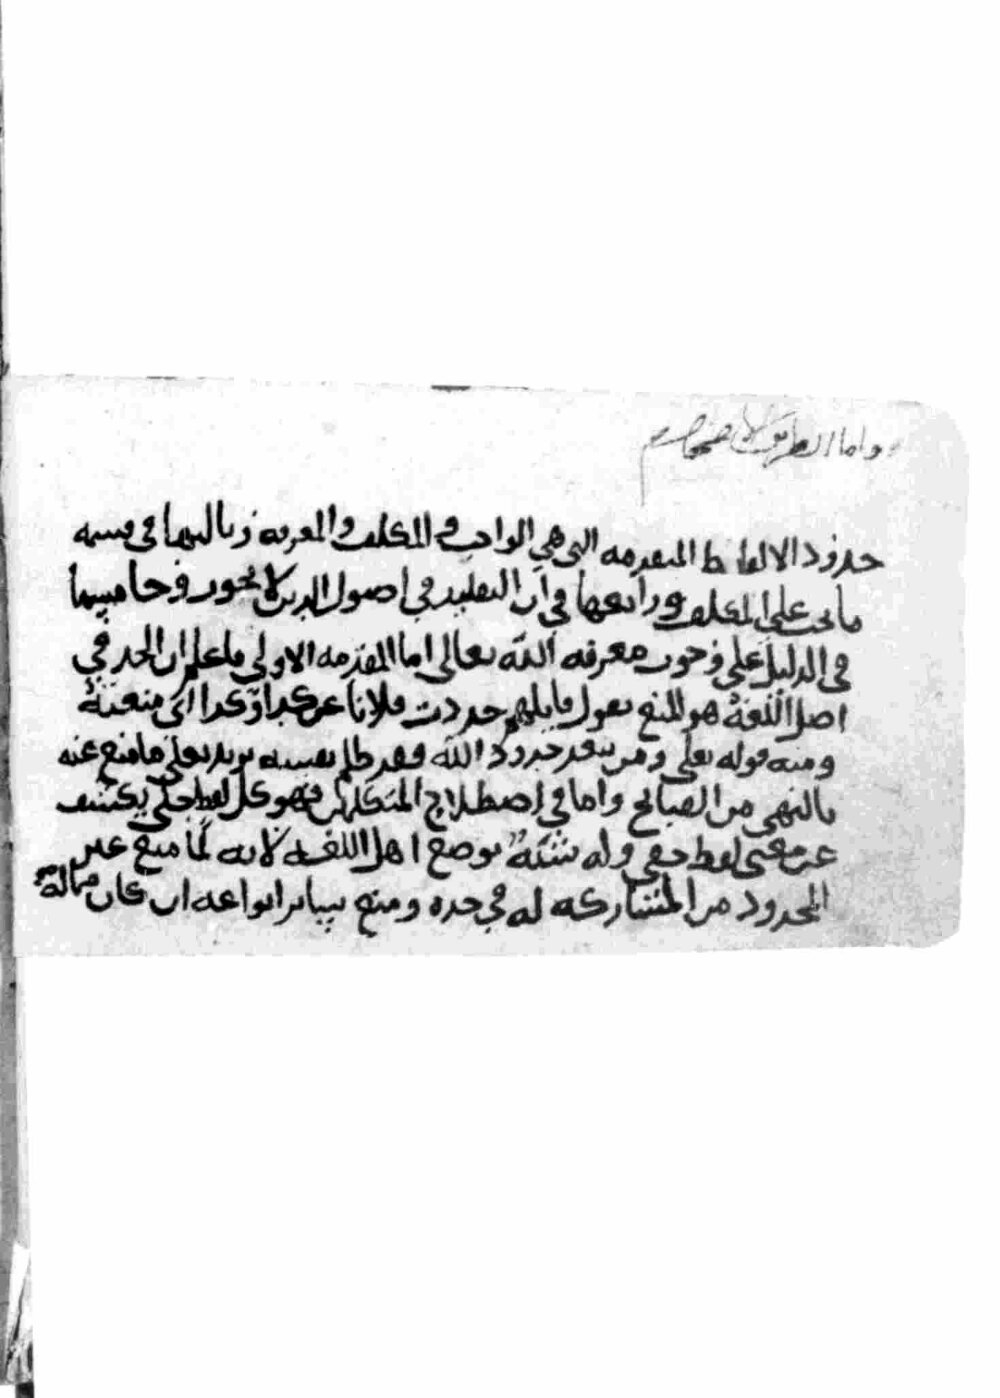 واما الطريق
حدود الالفاظ المتقدمه التى هي الواجب والمكلف والمعرفه وثالثها في قسمه
ما يجب على المكلف ورابعها في ان التقليد في اصول الدين لا يجوز وخامسها
في الدليل على وجوب معرفه الله تعالى اما المقدمه الاولى فاعلم ان الحد في
اصل اللغة هو المنع يقول قايلهم حددت فلانا عن كذا وكذا اى منعته
ومنه قوله تعلى ومن يتعد حدود الله فقد ظلم نفسه يريد تعلى ما منع عنه
بالنهي من القبائح واما في اصطلاح المتكلمين فهو كل لفظ جلي يكشف
عن معنى لفظ خفي وله شبه بوضع اهل اللغه لانه لما منع غير
المحدود من المشاركه له في حده ومنع سائر انواعه ان كان